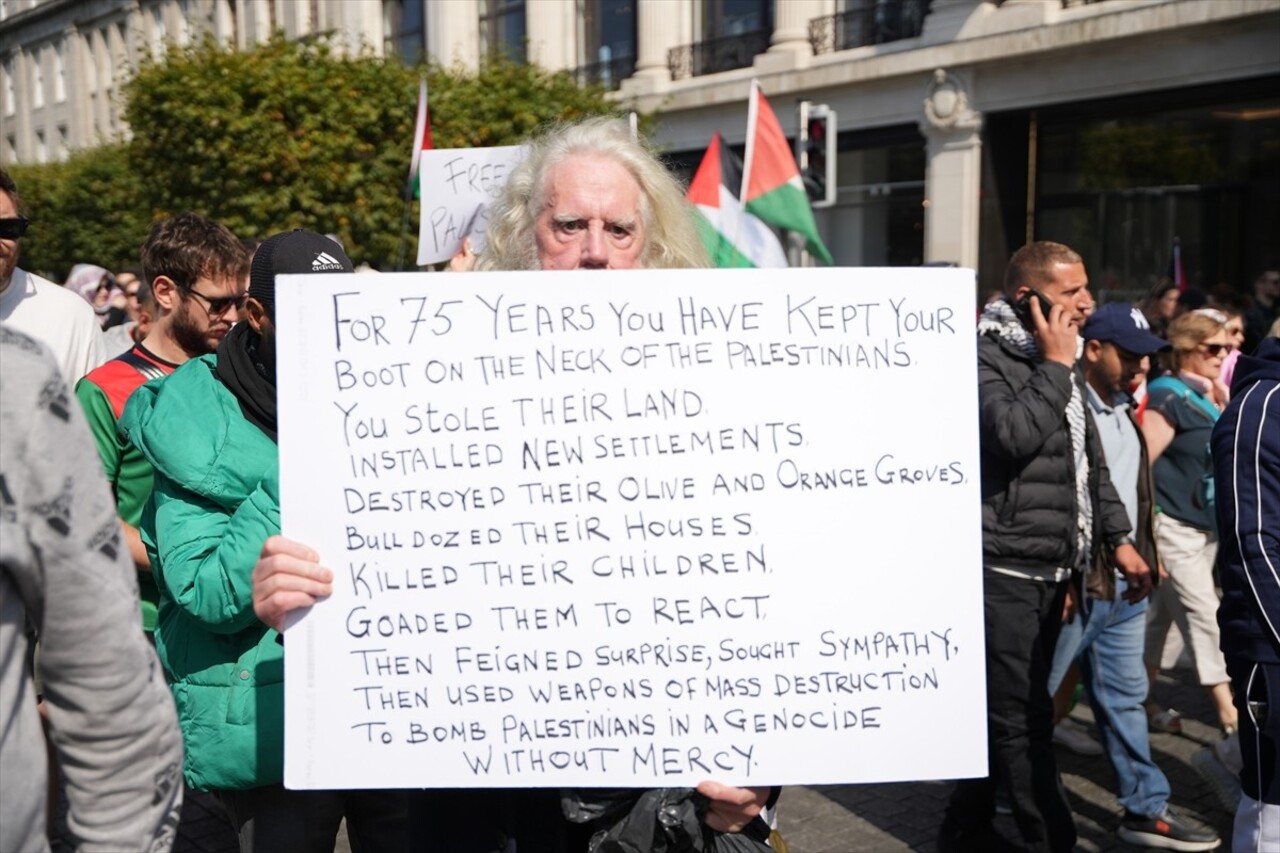 FREE
adidas
FOR 75 YEARS YOU HAVE KEPT YOUR
BOOT ON THE NECK OF THE PALESTINIANS.
YOU STOLE THEIR LAND.
INSTALLED NEW SETTLEMENTS.
DESTROYED THEIR OLIVE AND ORANGE GROVES.
BULLDOZED THEIR HOUSES.
KILLED THEIR CHILDREN.
GOADED THEM TO REACT.
THEN FEIGNED SURPRISE, SOUGHT SYMPATHY,
THEN USED WEAPONS OF MASS DESTRUCTION
TO BOMB PALESTINIANS IN A GENOCIDE
WITHOUT MERCY.